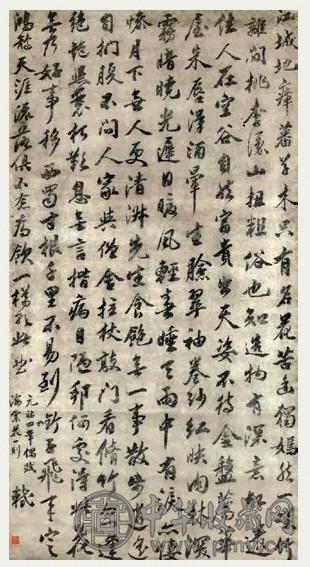 江城地瘴蕃草木只有名花苦幽獨嫣然一笑竹
籬間桃李漫山揔粗俗也知造物有深意故遣
佳人在空谷自然富貴出天姿不待金盤薦華
屋朱唇得酒暈生臉翠袖卷紗紅映肉林深
霧暗曉光遲日暖風輕春睡足雨中有淚亦悽
愴月下無人更清淑先生食飽無一事散步逍遙
自捫腹不問人家與僧舍拄杖敲門看脩竹忽逢
絕艷照衰朽歎息無言揩病目陋邦何處得此花
無乃好事移西蜀寸根千里不易到銜子飛來定
鴻鵠天涯流落俱可念為飲一樽歌此曲
元祐四年偶
海棠花 軾
中华收藏网